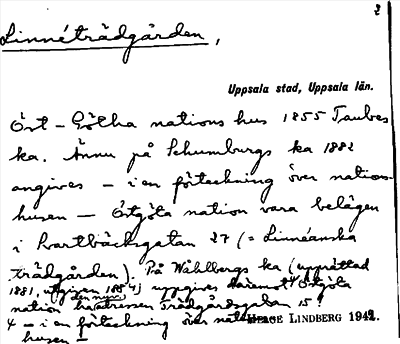 2
Linnéträdgården,
Uppsala stad, Uppsala län.
Öst-Götha nations hus 1855 Taubes
ka. Ännu på Schumburgs ka 1882
angives – i en förteckning över nations-
husen – Östgöta nation vara belägen
i Svartbäcksgatan 27 (= Linnéanska
trädgården). På Wåhlbergs ka (upprättad
1881, utgiven 1884) uppgives däremot Östgöta
nation ha den nuv. adressen Trädgårdsgatan 15.
4 – i en förteckning över
HELGE LINDBERG 1942.
husen –